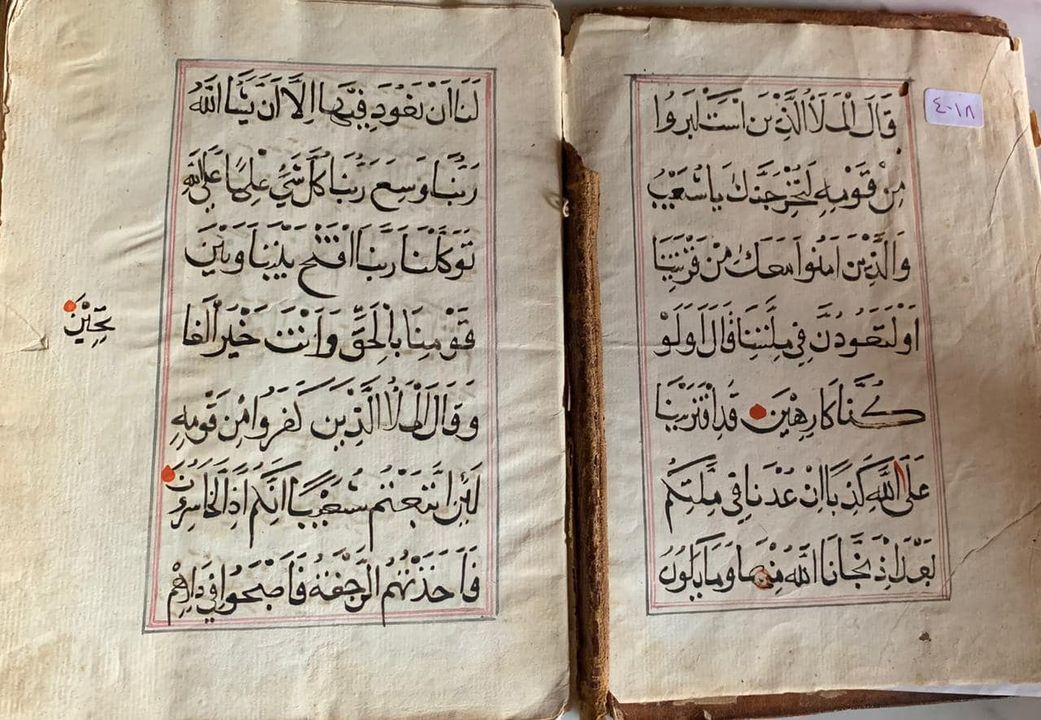 قَالَ الْمَلَأُ الَّذِينَ اسْتَكْبَرُوا
مِنْ قَوْمِهِ لَنُخْرِجَنَّكَ يَاشُعَيْبُ
وَالَّذِينَ اٰمَنُوا مَعَكَ مِنْ قَرْيَتِنَا
اَوْلَتَعُودُنَّ فِي مِلَّتِنَا قَالَ اَوَلَوْ
كُنَّا كَارِهِيْنَ قَدِ افْتَرَيْنَا
عَلَى اللّٰهِ كَذِبًا اِنْ عُدْنَا فِي مِلَّتِكُمْ
بَعْدَ اِذْ نَجَّانَا اللّٰهُ مِنْهَا وَمَا يَكُونُ
٤٠١٨
لَنَا اَنْ نَعُودَ فِيْهَا اِلَّا اَنْ يَشَاءَ اللّٰهُ
رَبُّنَا وَسِعَ رَبُّنَا كُلَّ شَيْءٍ عِلْمًا عَلَى اللّٰهِ
تَوَكَّلْنَا رَبَّنَا افْتَحْ بَيْنَنَا وَبَيْنَ
قَوْمِنَا بِالْحَقِّ وَاَنْتَ خَيْرُ الْفَا
تِحِيْنَ
وَقَالَ الْمَلَأُ الَّذِينَ كَفَرُوا مِنْ قَوْمِهِ
لَئِنِ اتَّبَعْتُمْ شُعَيْبًا اِنَّكُمْ اِذًا لَخَاسِرُونَ
فَاَخَذَتْهُمُ الرَّجْفَةُ فَاَصْبَحُوا فِي دَارِهِمْ